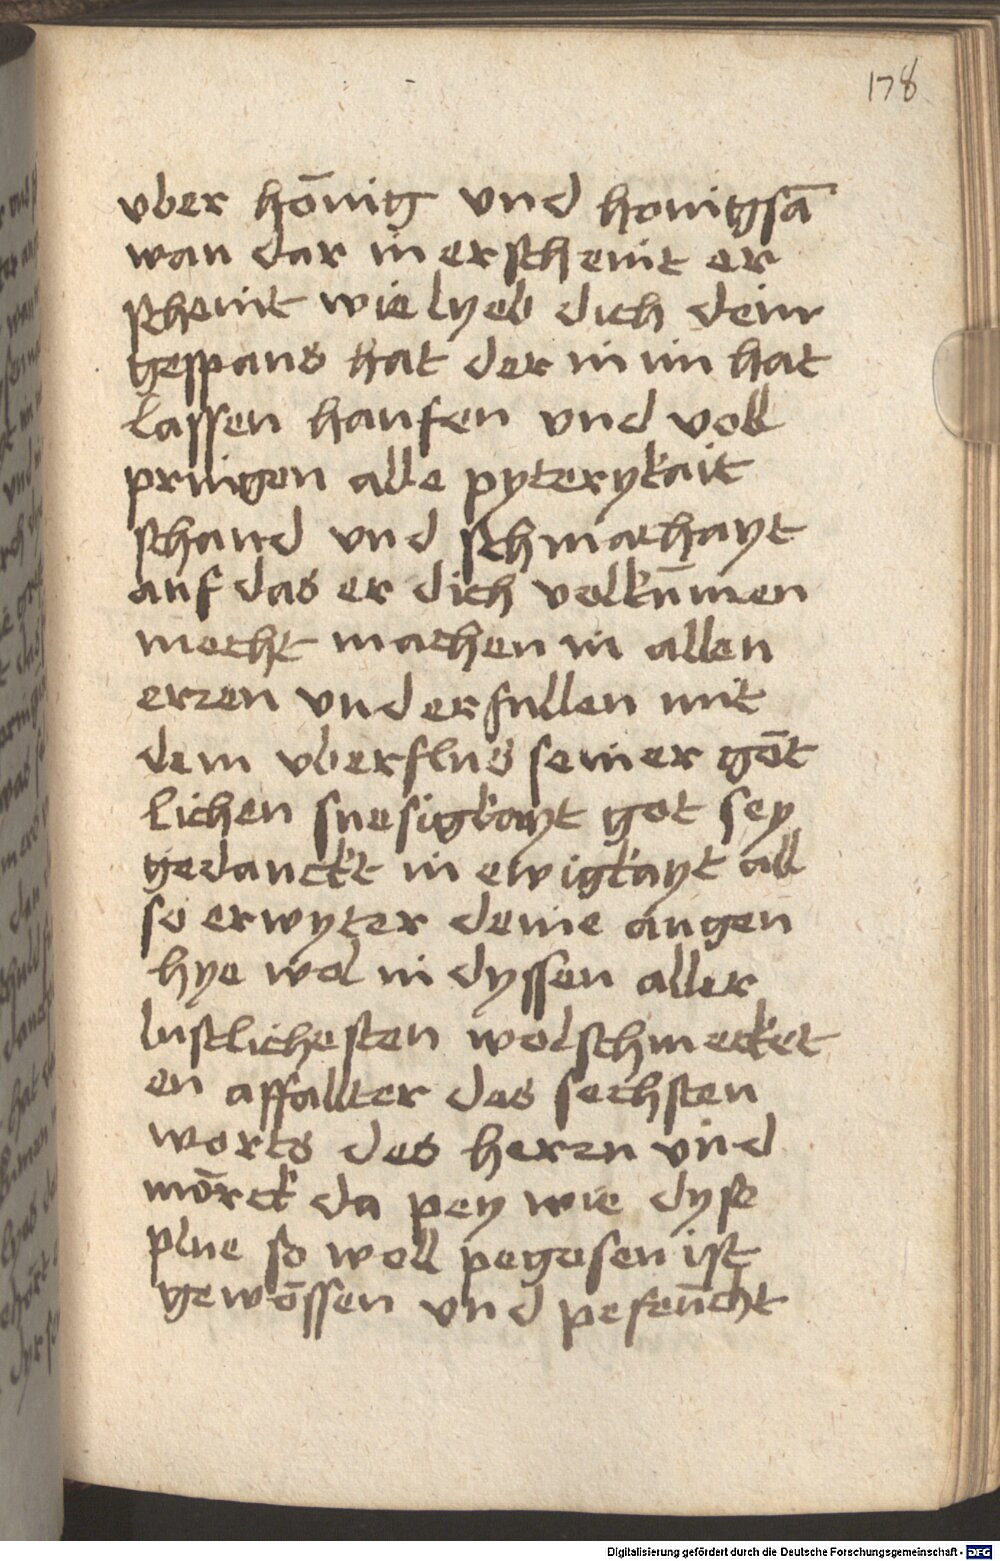 178
vber hōnig vnd honigsā
wan dar in erscheint er
scheint wie lyeb dich dein
gespans hat der in im hat
lassen haufen vnd voll
pringen alle pyterykait
schand vnd schmachayt
auf das er dich volkūmen
mecht machen in allen
erzen vnd erfullen mit
dem vberflus seiner gōt
lichen suesigkayt got sey
gedanckt in ewigkayt all
so erwyter deine augen
hye wol in dyssen aller
lustlichesten wolschmecket
en affallter des sechsten
worts des herzn vnd
mōrck da pey wie dyse
plue so woll pegosen ist
gewōssen vnd pefeūcht
Digitalisierung gefördert durch die Deutsche Forschungsgemeinschaft - DFG